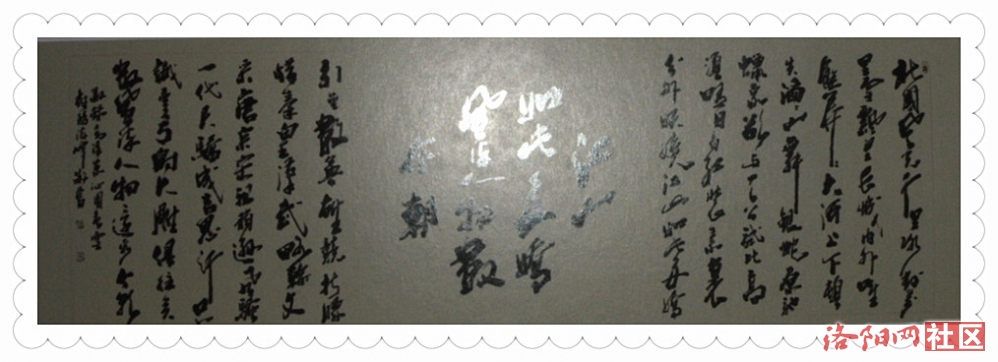 北国风光千里冰封万
里雪飘望长城内外唯
余莽莽大河上下顿
失滔滔山舞银蛇原驰
蜡象欲与天公试比高
须晴日看红装素裹
分外妖娆江山如此多娇
江山
如此多娇
风流人物數
朝
引无數英雄竞折腰
惜秦皇汉武略输文
采唐宗宋祖稍逊风骚
一代天骄成吉思汗只
识弯弓射大雕俱往矣
數风流人物还看今朝
洛阳网社区